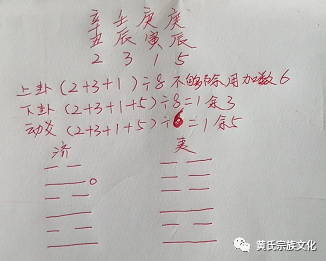 辛壬庚庚
丑辰寅辰
2 3 1 5
上卦(2+3+1)÷8 不够除用加数6
下卦(2+3+1+5)÷8=1余3
动爻(2+3+1+5)÷6=1余5
济 夷
黄氏宗族文化